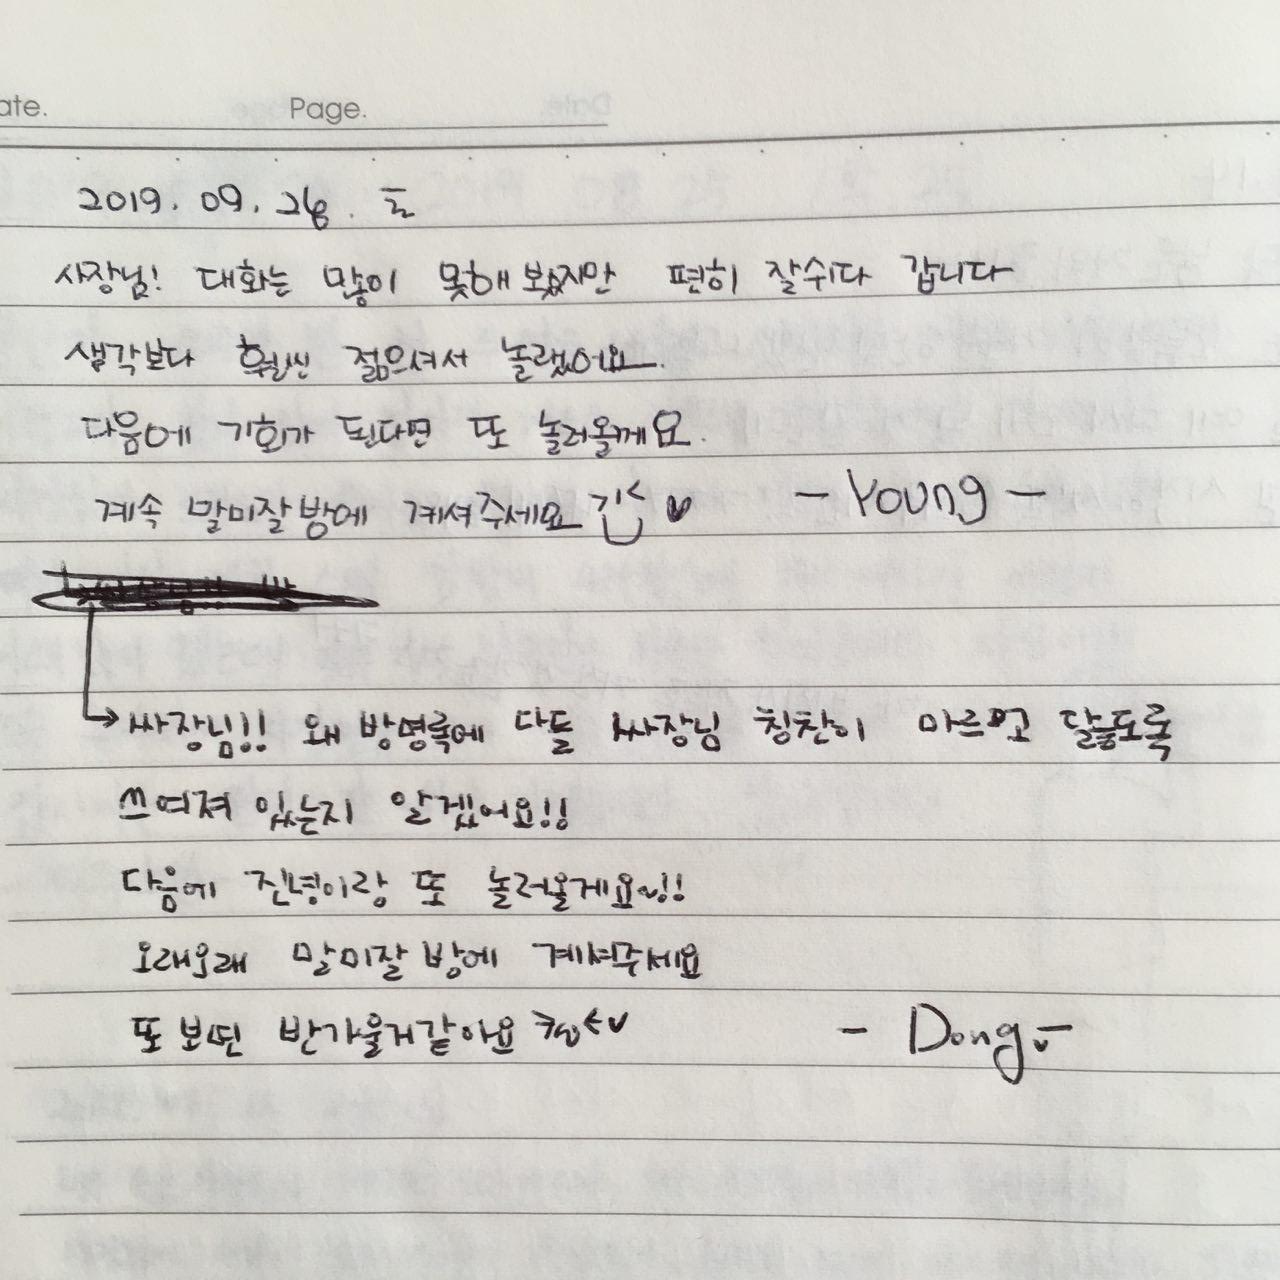 ate. Page.
2019. 09. 28. 토
사장님! 대화는 많이 못해 봤지만 편히 잘쉬다 갑니다
생각보다 훨씬 젊으셔서 놀랬어요.
다음에 기회가 된다면 또 놀러올께요.
계속 말미잘방에 계셔주세요 - Young -
싸장님!! 왜 방명록에 다들 싸장님 칭찬이 마르고 닳도록
쓰여져 있는지 알겠어요!!
다음에 진녕이랑 또 놀러올게요~!!
오래오래 말미잘방에 계셔주세요
또 보면 반가울거같아요 - Dong -